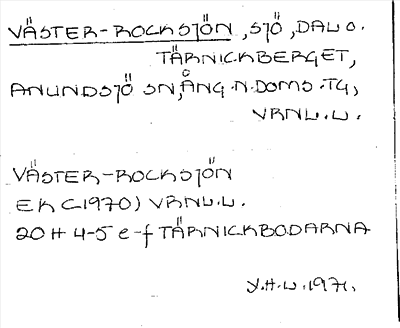 VÄSTER-ROCKSJÖN, SJÖ, DAL O.
TÄRNICKBERGET,
ANUNDSJÖ SN, ÅNG. N. DOMS. TG,
VRNL. L.
VÄSTER-ROCKSJÖN
EK (1970) VRNL. L.
20H 4-5 e-f TÄRNICKBODARNA
Y.H.L. 1971.